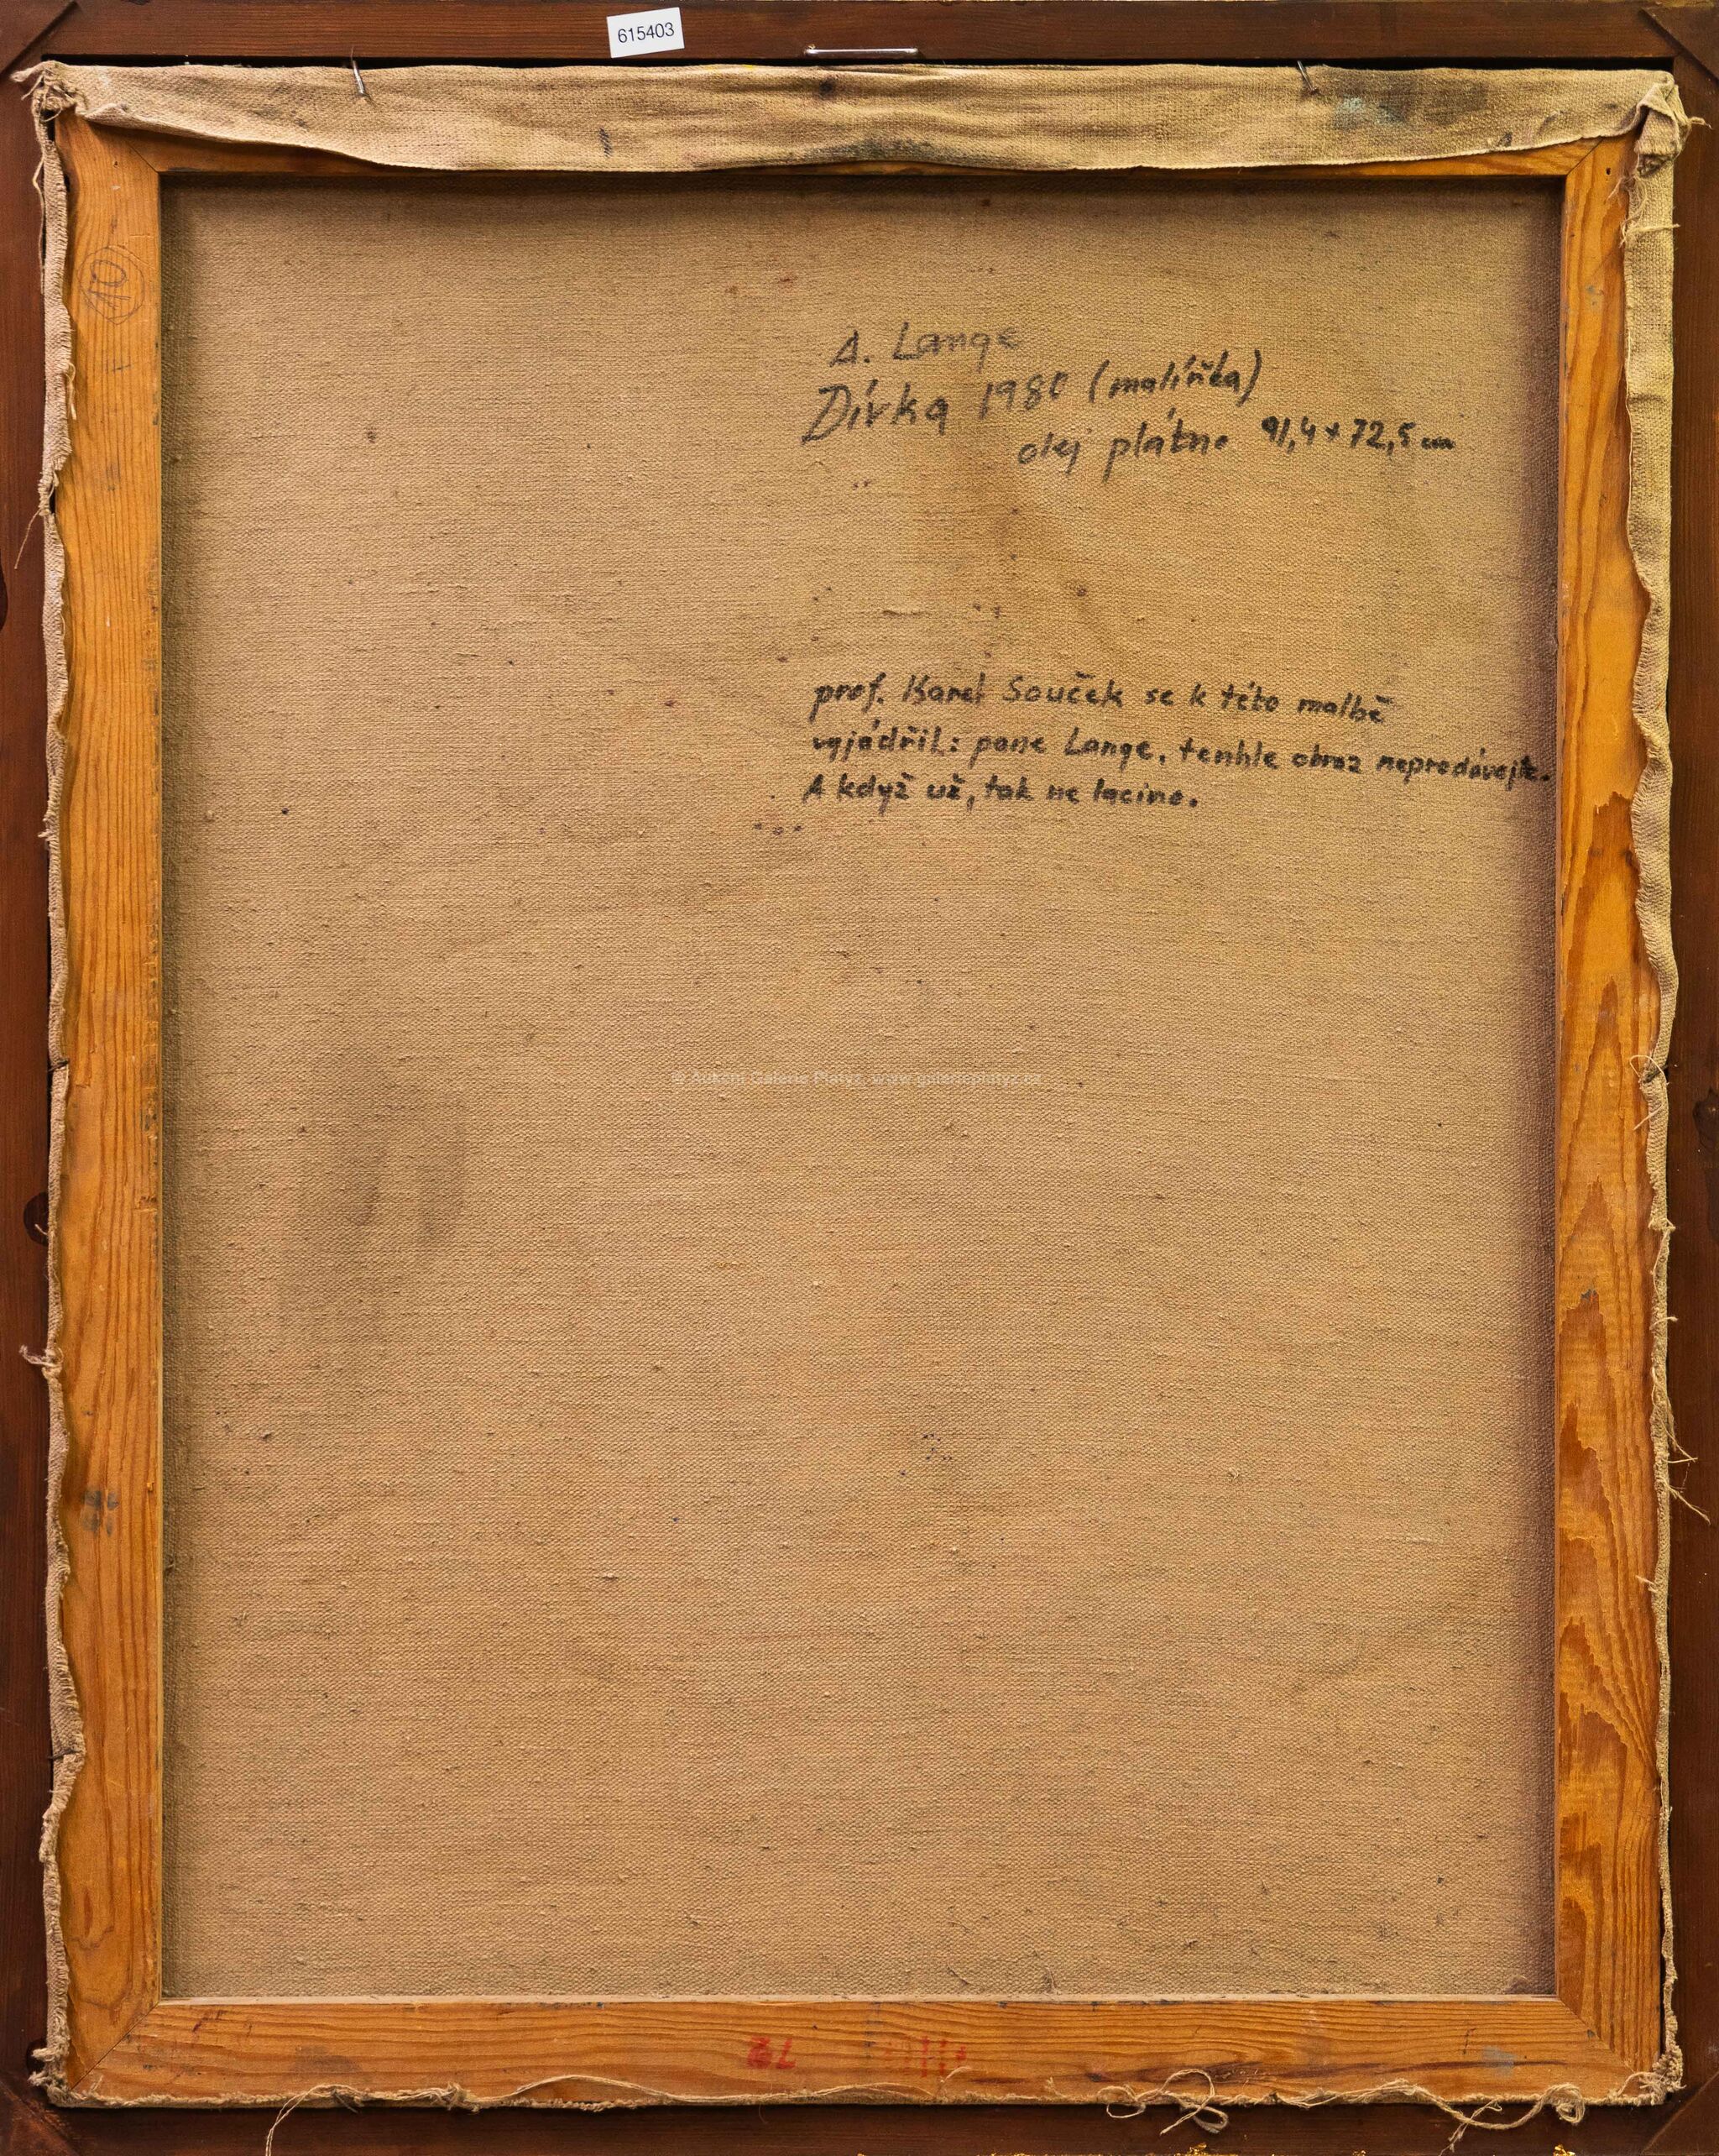 615403
10
A. Lange
Dívka 1980 (malířka)
olej plátno 91,4 x 72,5 cm
prof. Karel Souček se k této malbě
vyjádřil: pane Lange, tenhle obraz neprodávejte.
A když už, tak ne lacino.
© Aukční Galerie Platýz, www.galerieplatyz.cz
72